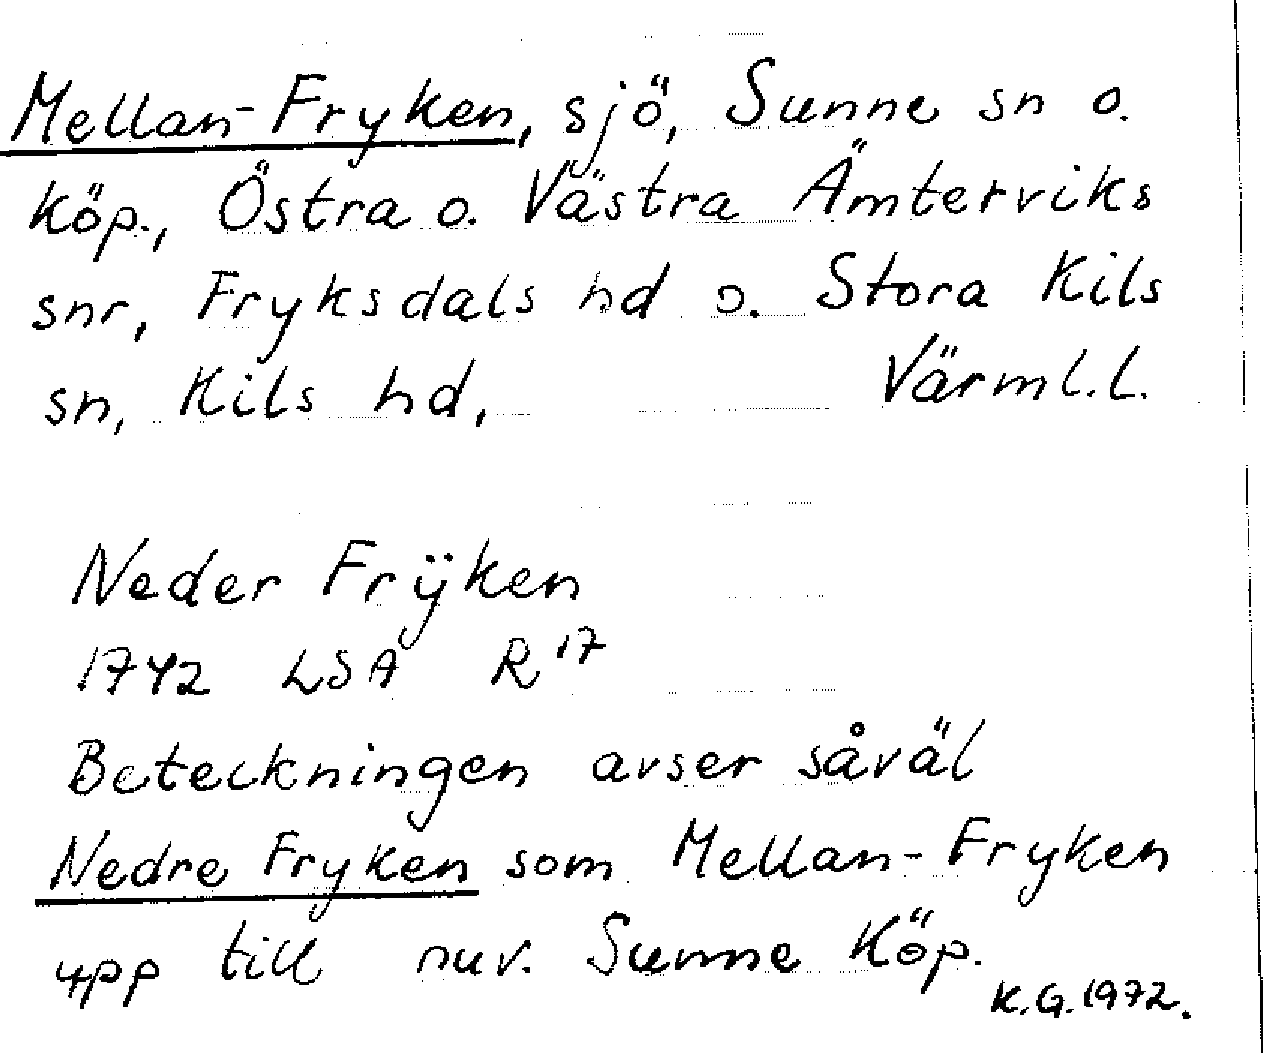 Mellan-Fryken, sjö, Sunne sn o.
köp., Östra o. Västra Ämterviks
snr, Fryksdals hd o. Stora Kils
sn, Kils hd, Värml.l.
Neder Frÿken
1742 LSA R 17
Beteckningen avser såväl
Nedre Fryken som Mellan-Fryken
upp till nuv. Sunne Köp.
K.G.1972.